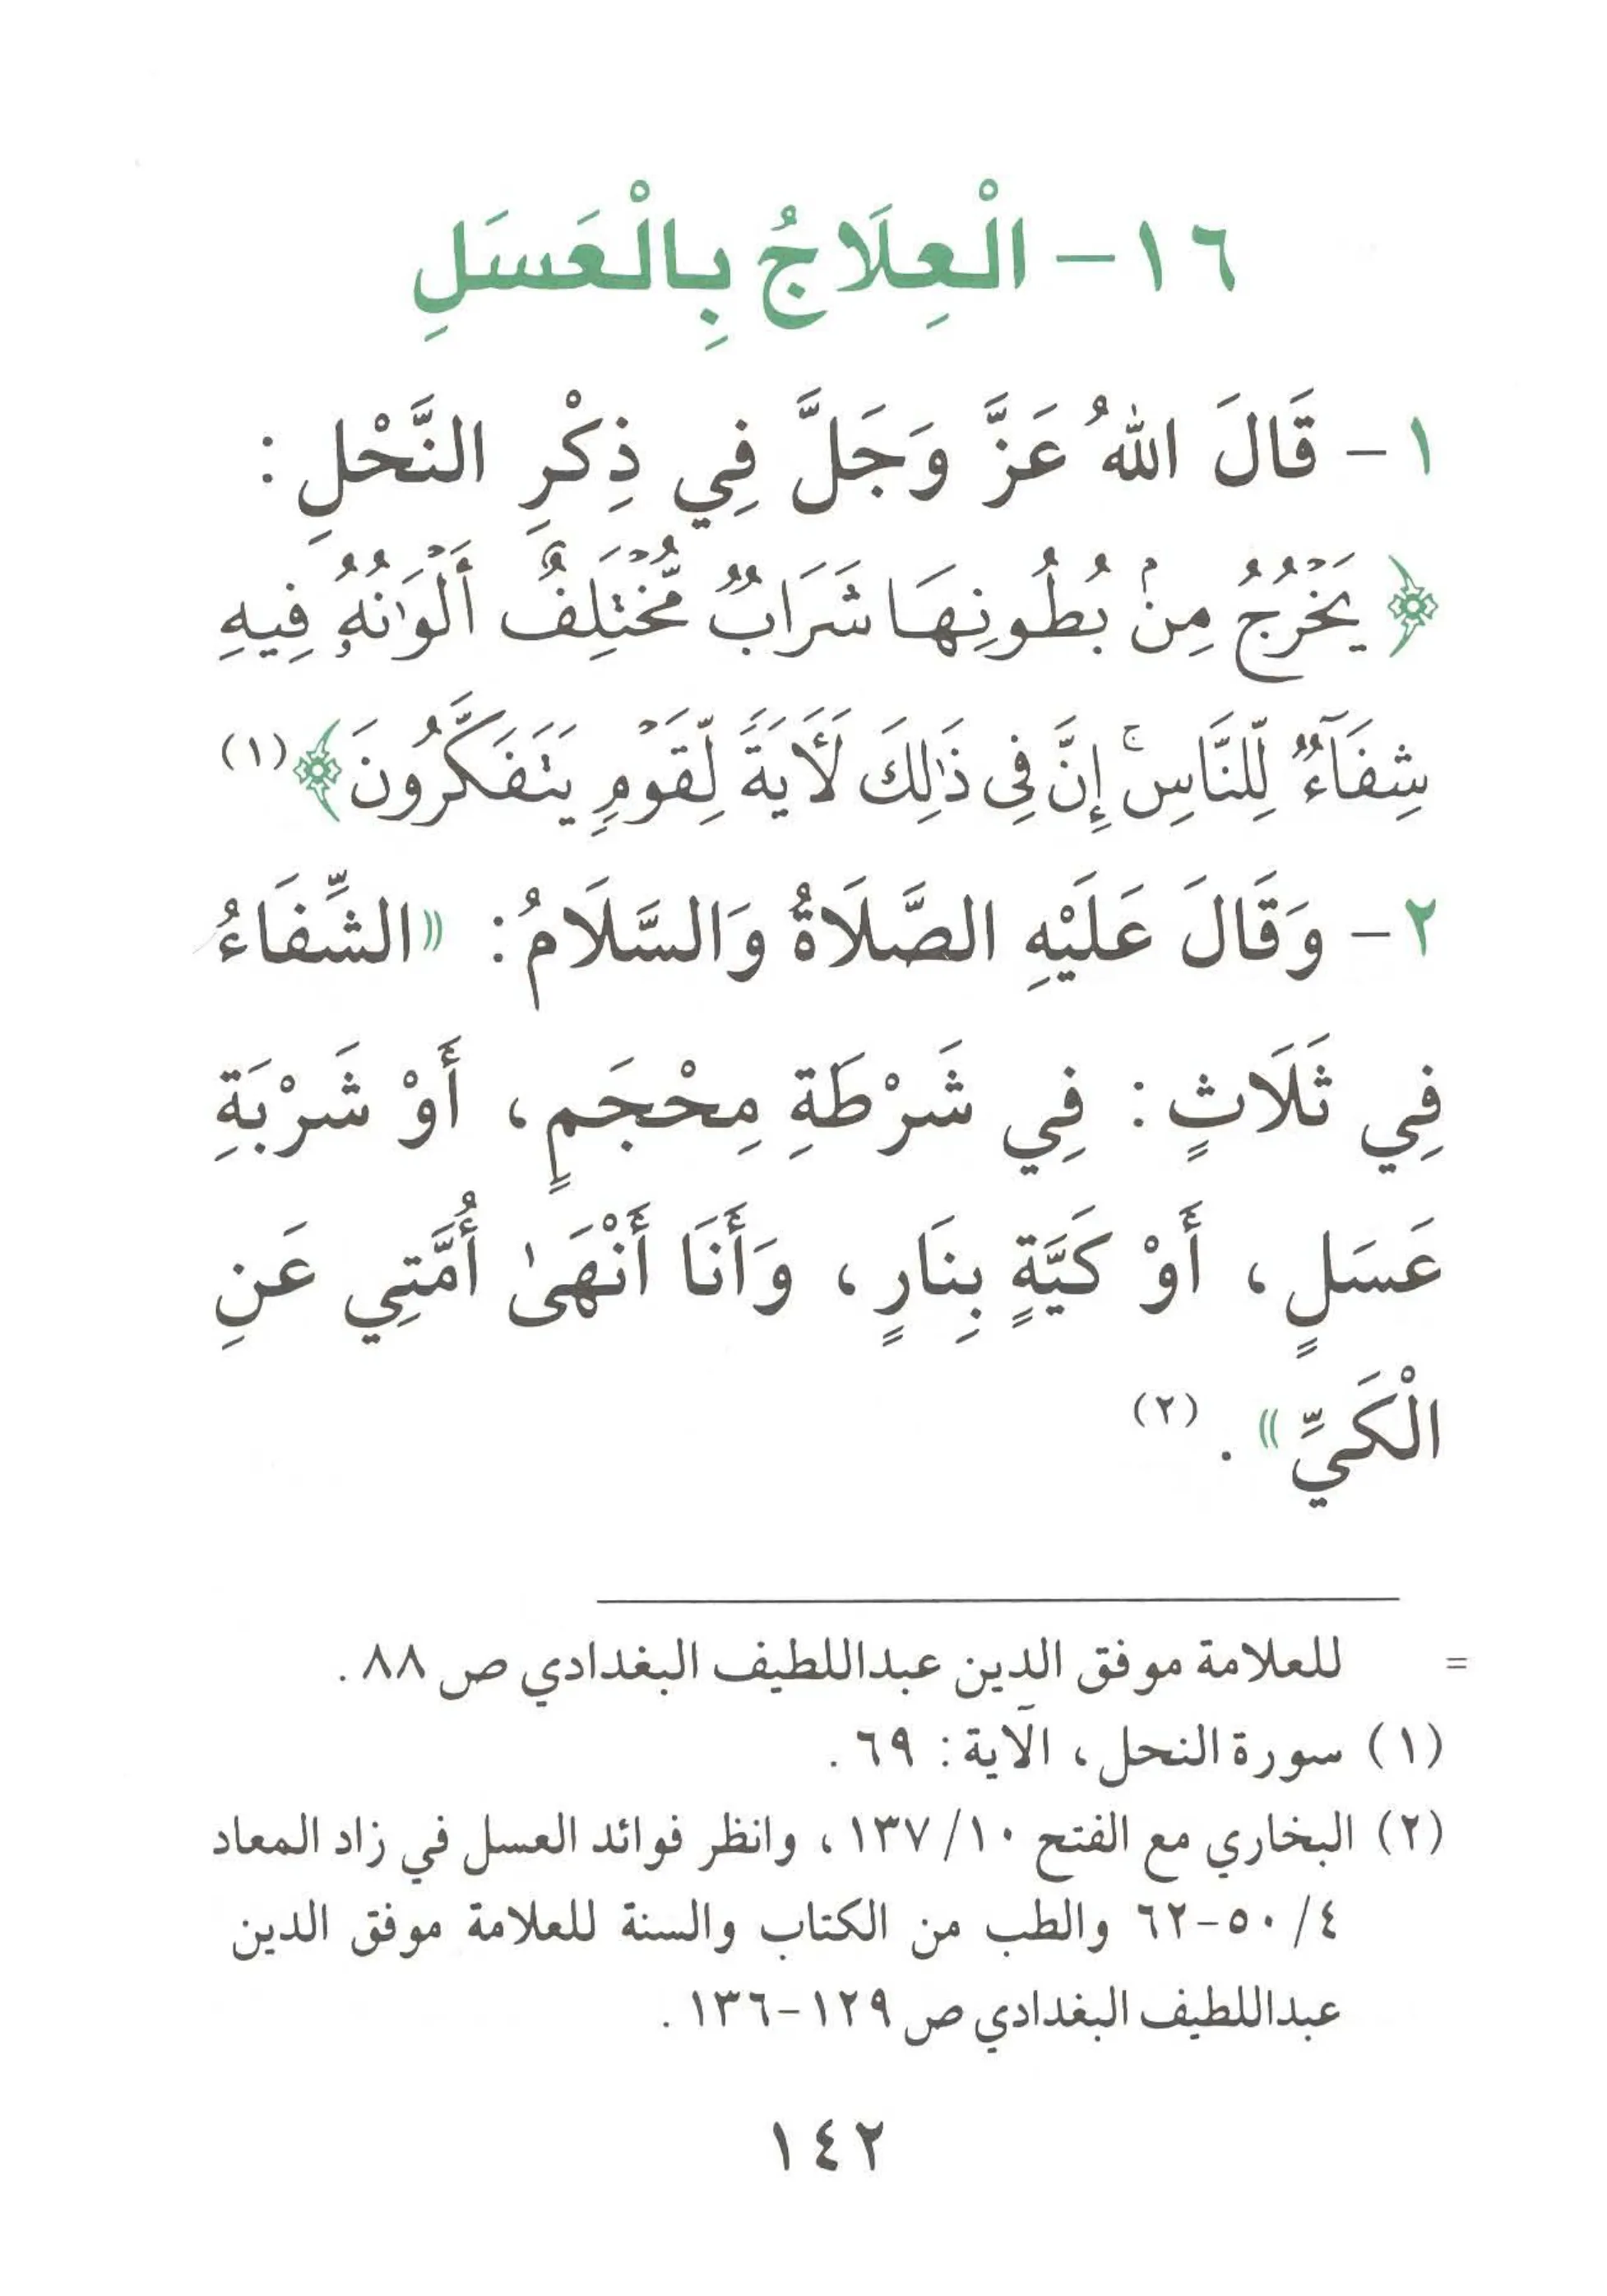 ١٦- الْعِلَاجُ بِالْعَسَلِ
١- قَالَ اللهُ عَزَّ وَجَلَّ فِي ذِكْرِ النَّحْلِ:
﴿يَخْرُجُ مِنۢ بُطُونِهَا شَرَابٌ مُّخْتَلِفٌ أَلْوَٰنُهُۥ فِيهِ
شِفَآءٌ لِّلنَّاسِ ۚ إِنَّ فِى ذَٰلِكَ لَأٓيَةً لِّقَوْمٍ يَتَفَكَّرُونَ﴾(١)
٢- وَقَالَ عَلَيْهِ الصَّلَاةُ وَالسَّلَامُ: «الشِّفَاءُ
فِي ثَلَاثٍ: فِي شَرْطَةِ مِحْجَمٍ، أَوْ شَرْبَةِ
عَسَلٍ، أَوْ كَيَّةٍ بِنَارٍ، وَأَنَا أَنْهَىٰ أُمَّتِي عَنِ
الْكَيِّ».(٢)
= للعلامة موفق الدين عبداللطيف البغدادي ص ٨٨.
(١) سورة النحل، الآية: ٦٩.
(٢) البخاري مع الفتح ١٠/ ١٣٧، وانظر فوائد العسل في زاد المعاد
٤/ ٥٠-٦٢ والطب من الكتاب والسنة للعلامة موفق الدين
عبداللطيف البغدادي ص ١٢٩-١٣٦.
١٤٢